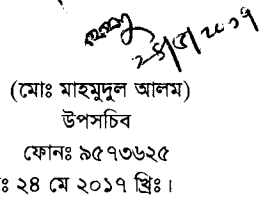 ২৪/৫/২০১৭
(মোঃ মাহমুদুল আলম)
উপসচিব
ফোনঃ ৯৫৭৩৬২৫
ঃ ২৪ মে ২০১৭ খ্রিঃ।